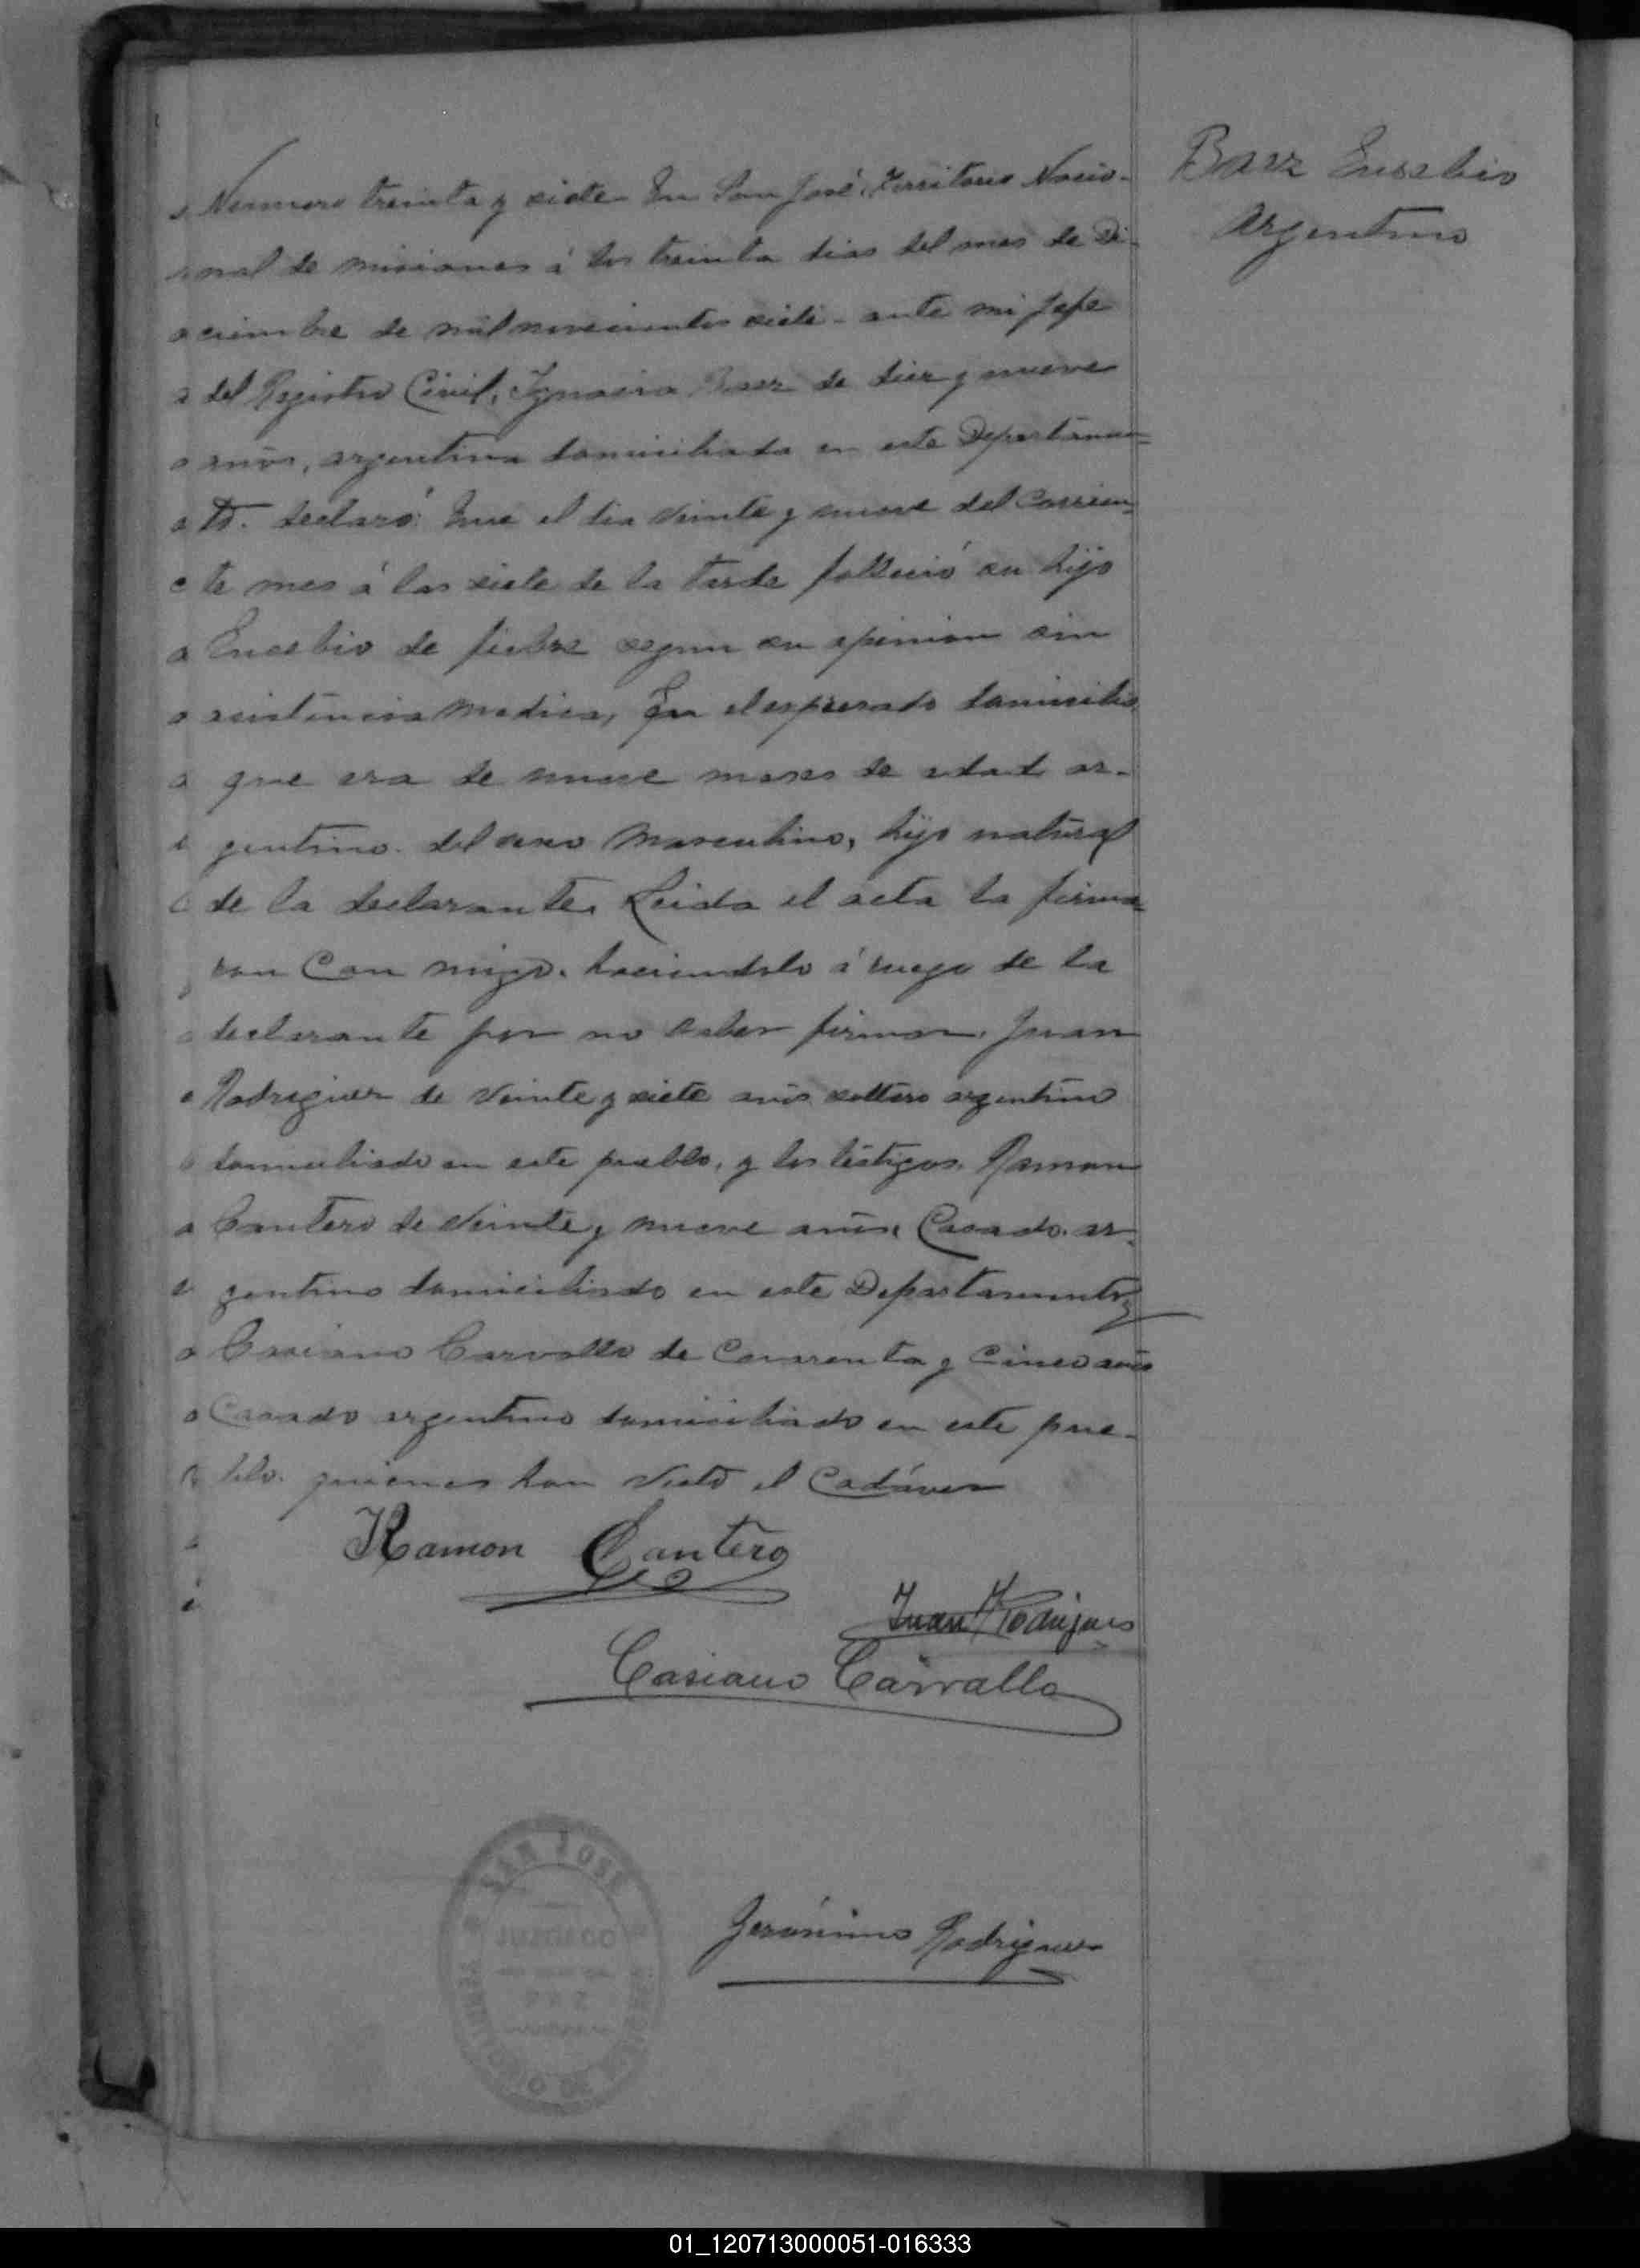 Baez Eusebio
Argentino
Numero treinta y siete En San José, Territorio Nacio-
nal de misiones á los treinta dias del mes de Di-
ciembre de mil novecientos siete - ante mi Jefe
del Registro Civil, Ignacia Baez de diez y nueve
años, argentina domiciliada en este Departamen=
to. declaró: Que el dia veinte y nueve del Corrien=
te mes á las siete de la tarde falleció su hijo
Eusebio de fiebre segun su opinion sin
asistencia medica, En el espresado domicilio
que era de nueve meses de edad ar-
gentino. del sexo Masculino, hijo natural
de la declarante. Leida el acta la firma=
ron Con migo. haciendolo á ruego de la
declarante por no saber firmar. Juan
Rodriguez de veinte y siete años soltero argentino
domiciliado en este pueblo, y los testigos. Ramon
Cantero de Veinte y nueve años, Casado. ar-
gentino domiciliado en este Departamento y
Casiano Carvallo de Cuarenta y Cinco años
Casado argentino domiciliado en este pue-
blo. quienes han Visto el Cadáver
Ramon Cantero
Juan Rodrigues
Casiano Carvallo
SAN JOSE
JUZGADO
PAZ
Jerónimo Rodriguez
01_120713000051-016333